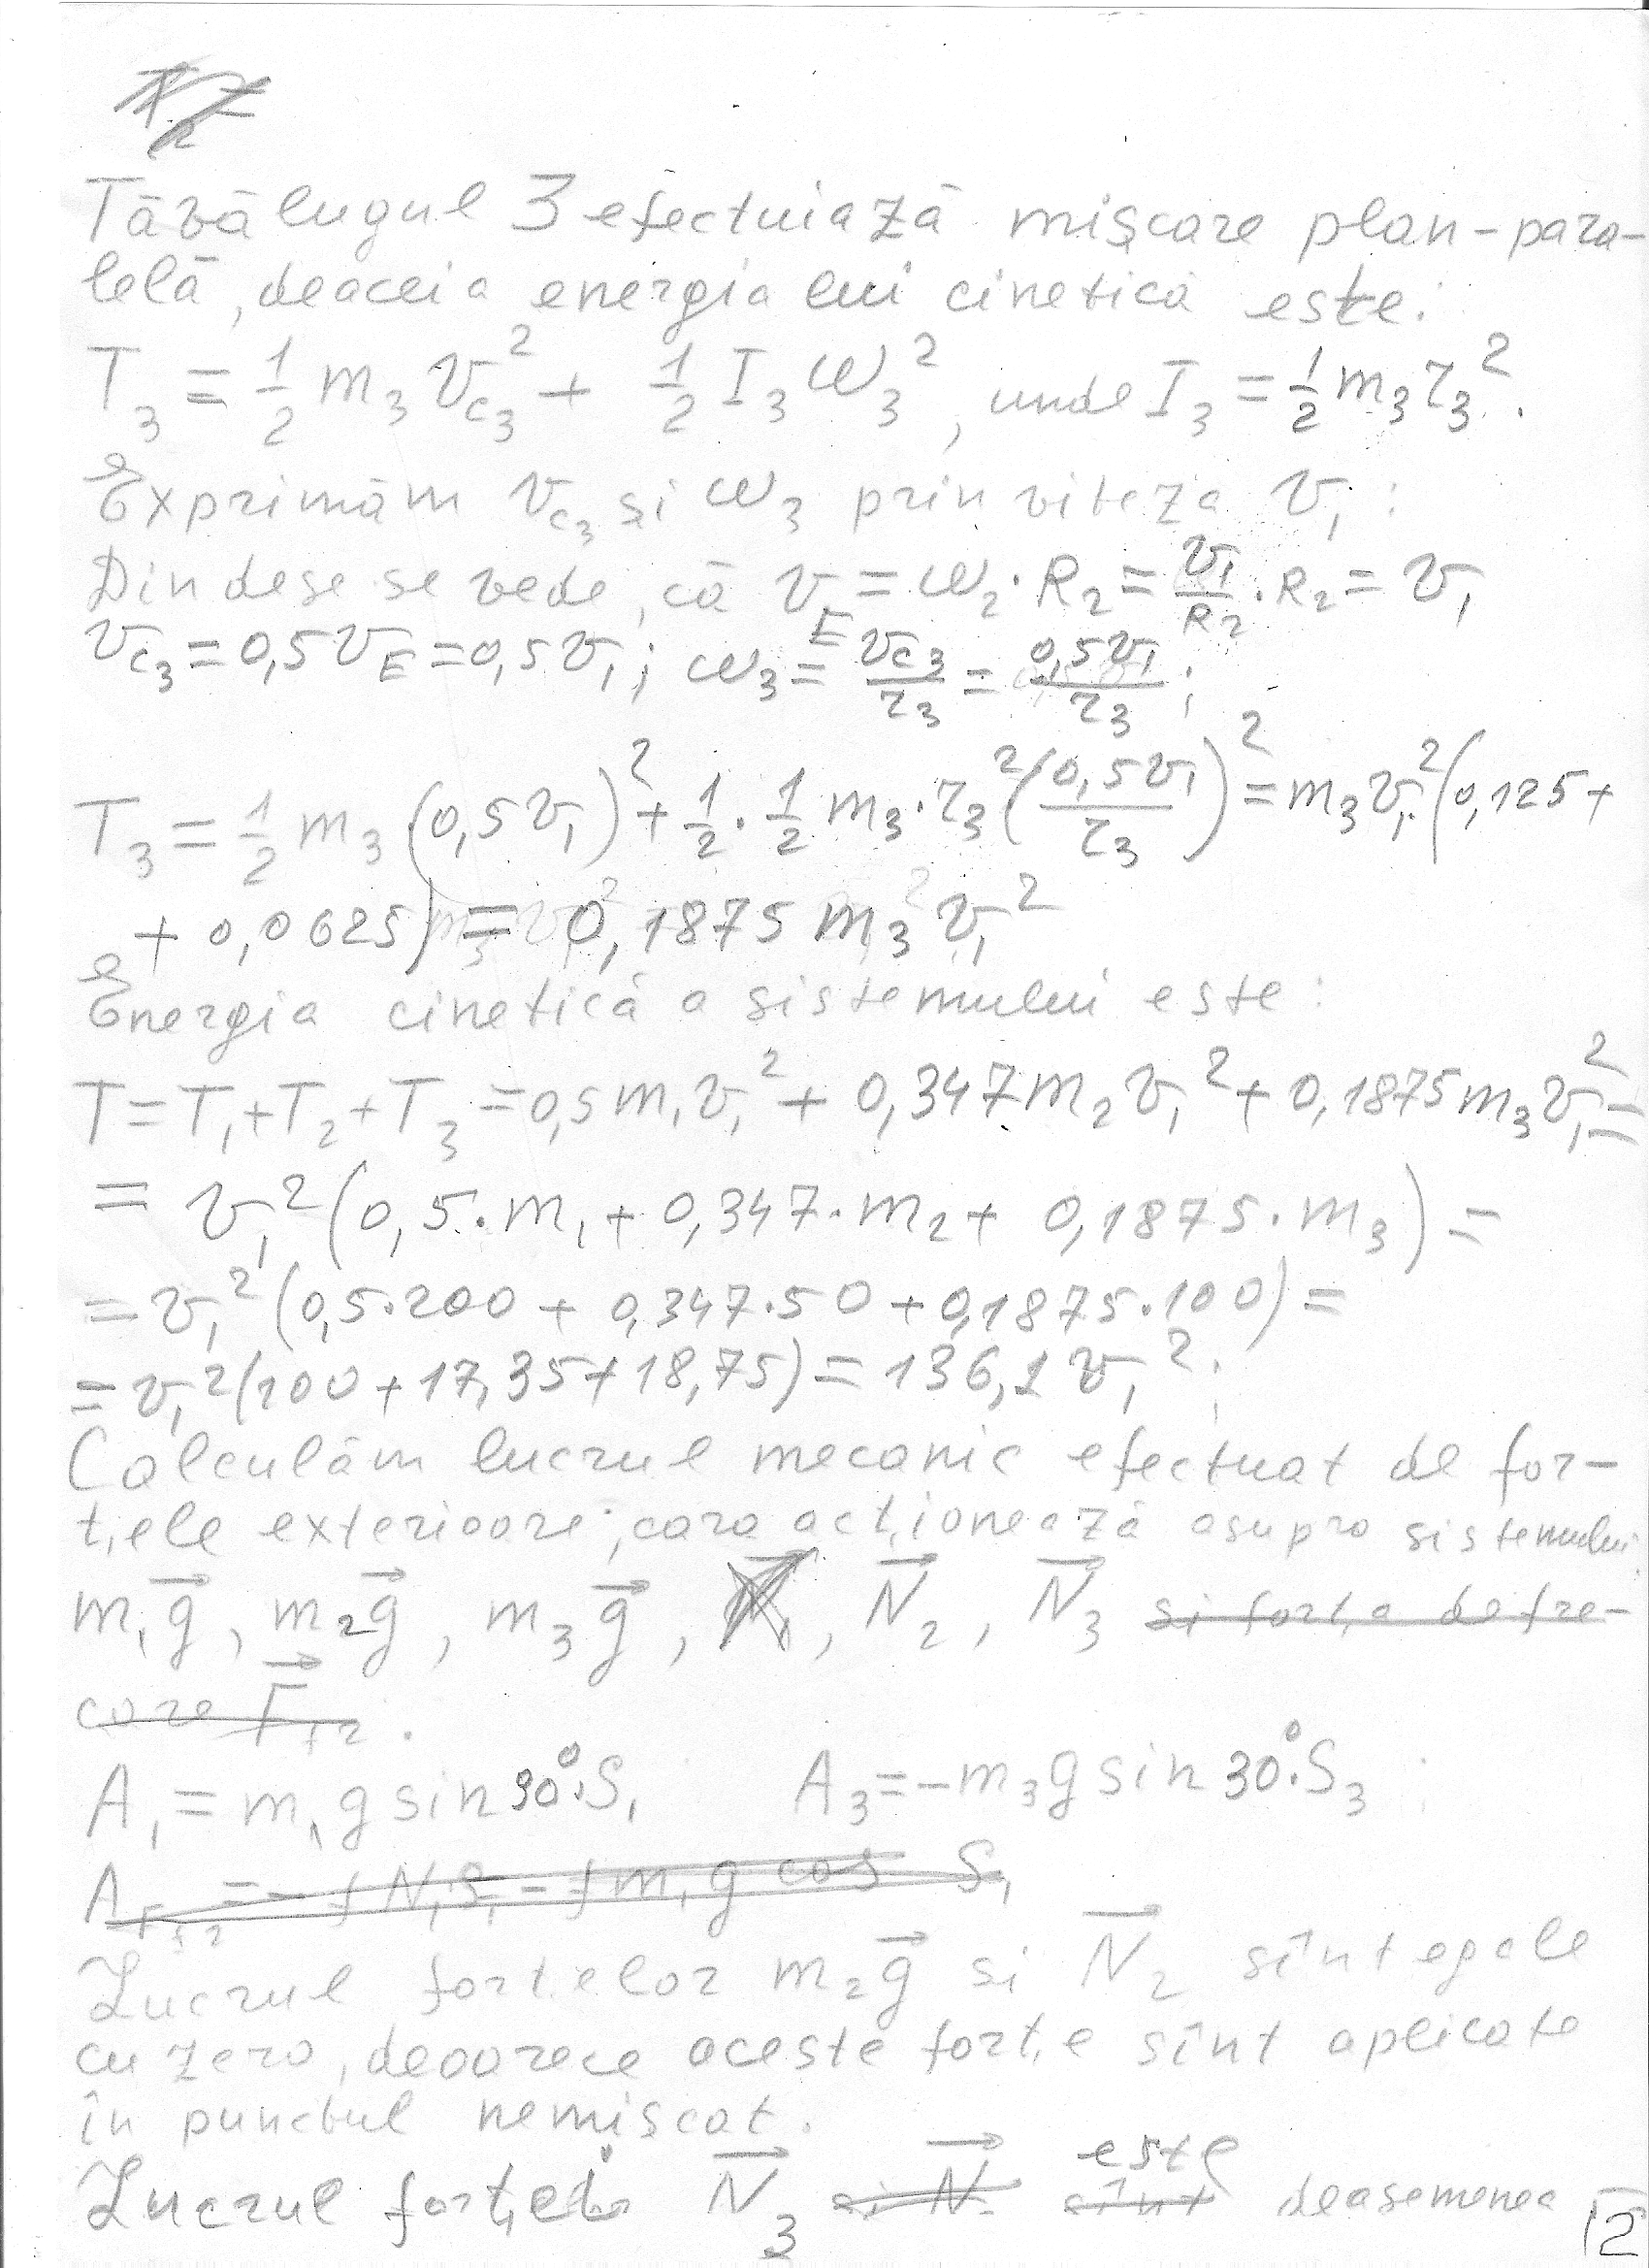 Tăvălugul 3 efectuiază mișcare plan-para-
lelă, deaceia energia lui cinetică este:
T₃ = 1/2 m₃ v_c₃² + 1/2 I₃ ω₃², unde I₃ = 1/2 m₃ r₃².
Exprimăm v_c₃ și ω₃ prin viteza v₁:
Din dese se vede, că v_E = ω₂·R₂ = v₁/R₂·R₂ = v₁
v_c₃ = 0,5 v_E = 0,5 v₁; ω₃ = v_c₃/r₃ = 0,5v₁/r₃;
T₃ = 1/2 m₃ (0,5 v₁)² + 1/2·1/2 m₃·r₃² (0,5v₁/r₃)² = m₃v₁²(0,125+
+ 0,0625) = 0,1875 m₃ v₁²
Energia cinetică a sistemului este:
T = T₁+T₂+T₃ = 0,5 m₁v₁² + 0,347 m₂v₁² + 0,1875 m₃v₁² =
= v₁² (0,5·m₁ + 0,347·m₂ + 0,1875·m₃) =
= v₁² (0,5·200 + 0,347·50 + 0,1875·100) =
= v₁² (100 + 17,35 + 18,75) = 136,1 v₁²;
Calculăm lucrul mecanic efectuat de for-
țele exterioare, cara acționează asupra sistemului:
m₁g⃗, m₂g⃗, m₃g⃗, , N⃗₂, N⃗₃ și forța de fre-
care F⃗fr.
A₁ = m₁ g sin 90°·S₁ A₃ = -m₃ g sin 30°·S₃;
A_Ffr = -f N₁S₁ = f m₁ g cos S₁
Lucrul forțelor m₂g⃗ și N⃗₂ sînt egale
cu zero, deoarece aceste forțe sînt aplicate
în punctul nemișcat.
Lucrul forței N⃗₃ și N⃗ sînt este deasemenea
12